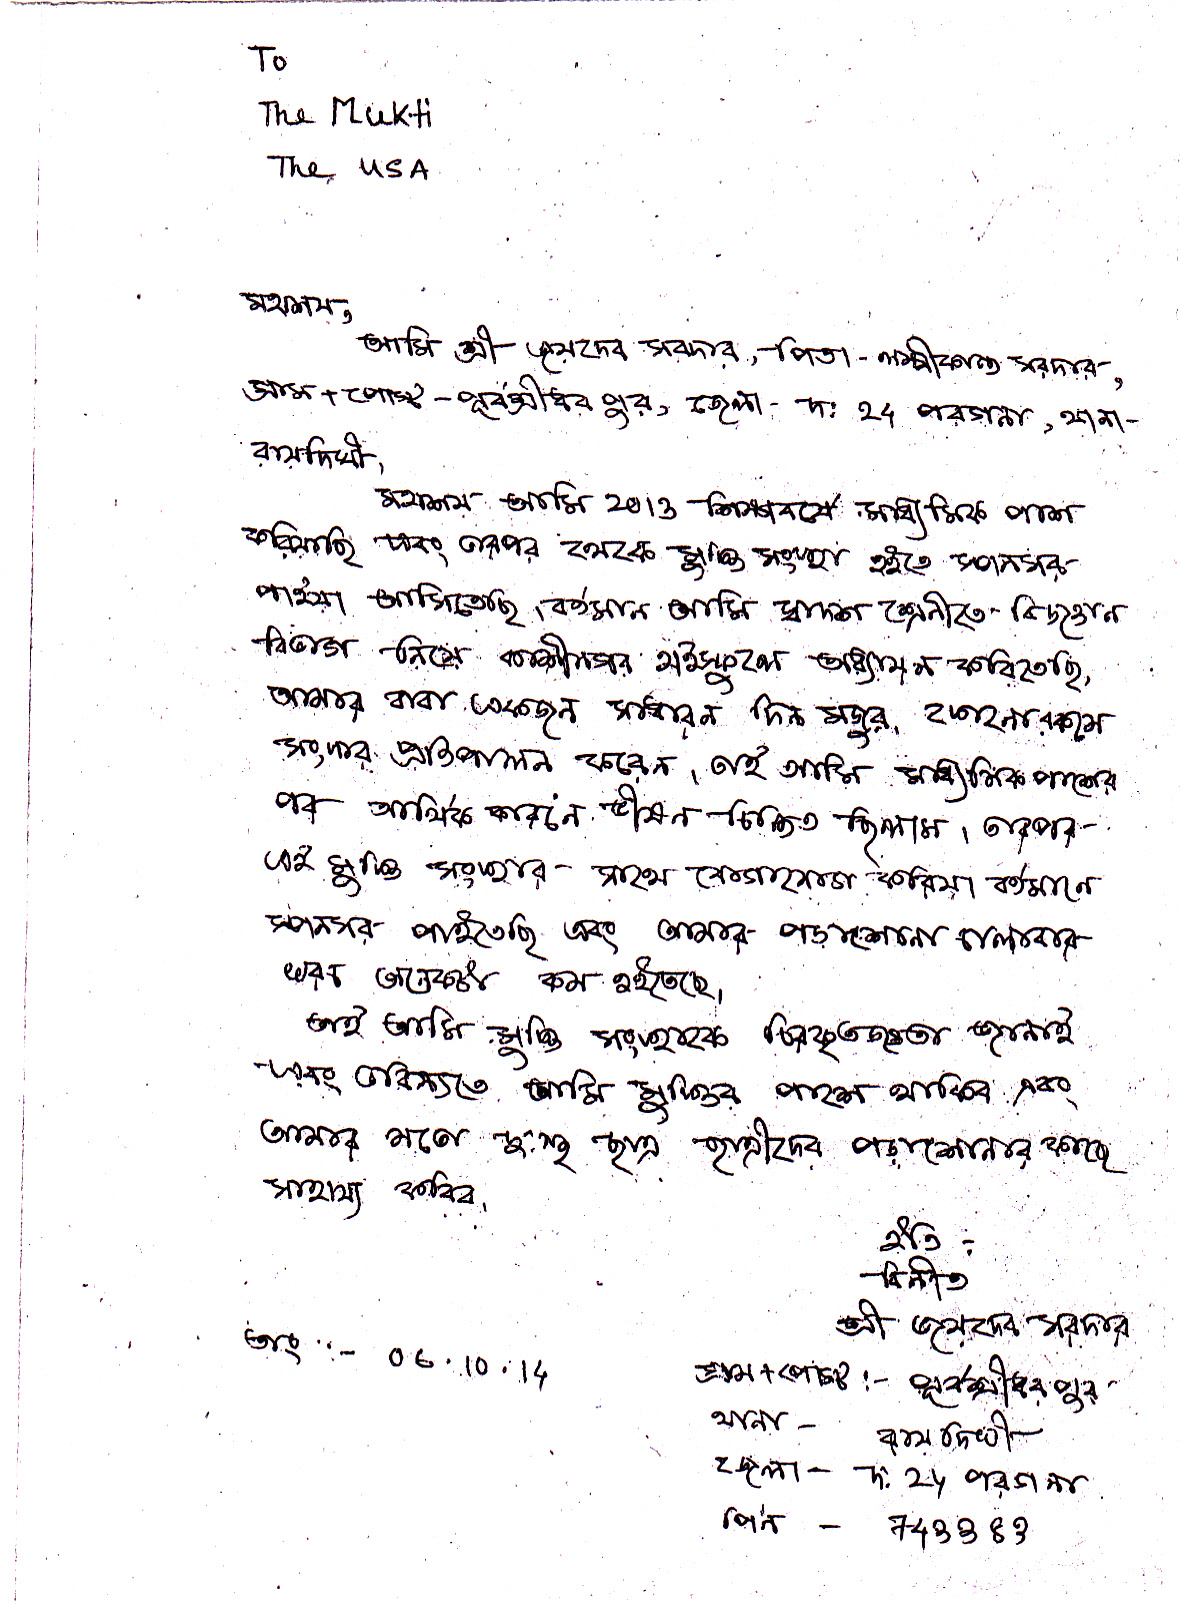 To
The Mukti
The USA
মহাশয়,
আমি শ্রী জয়দেব সরদার, পিতা - লক্ষ্মীকান্ত সরদার,
গ্রাম + পোষ্ট - পূর্বশ্রীধরপুর, জেলা - দঃ 24 পরগনা, থানা-
রায়দিঘী,
মহাশয় আমি 2013 শিক্ষাবর্ষে মাধ্যমিক পাশ
করিয়াছি এবং তারপর থেকে মুক্তি সংস্থা হইতে স্পনসর
পাইয়া আসিতেছি। বর্তমান আমি দ্বাদশ শ্রেনীতে বিজ্ঞান
বিভাগ নিয়ে কাশীনগর হাইস্কুলে অধ্যায়ন করিতেছি,
আমার বাবা একজন সাধারন দিন মজুর, কোনোরকমে
সংসার প্রতিপালন করেন, তাই আমি মাধ্যমিক পাশের
পর আর্থিক কারনে ভীষন চিন্তিত ছিলাম। তারপর
এই মুক্তি সংস্থার সাথে যোগাযোগ করিয়া বর্তমানে
স্পনসর পাইতেছি এবং আমার পড়াশোনা চালাবার
খরচ অনেকটা কম হইতেছে,
তাই আমি মুক্তি সংস্থাকে চিরকৃতজ্ঞতা জানাই
এবং ভবিষ্যতে আমি মুক্তির পাশে থাকিব এবং
আমার মতো দুঃস্থ ছাত্র ছাত্রীদের পড়াশোনার কাছে
সাহায্য করিব,
ইতি :
বিনীত
শ্রী জয়দেব সরদার
তাং :- 06.10.14
গ্রাম + পোষ্ট :- পূর্বশ্রীধরপুর
থানা - রায়দিঘী
জেলা - দঃ 24 পরগনা
পিন - 743383